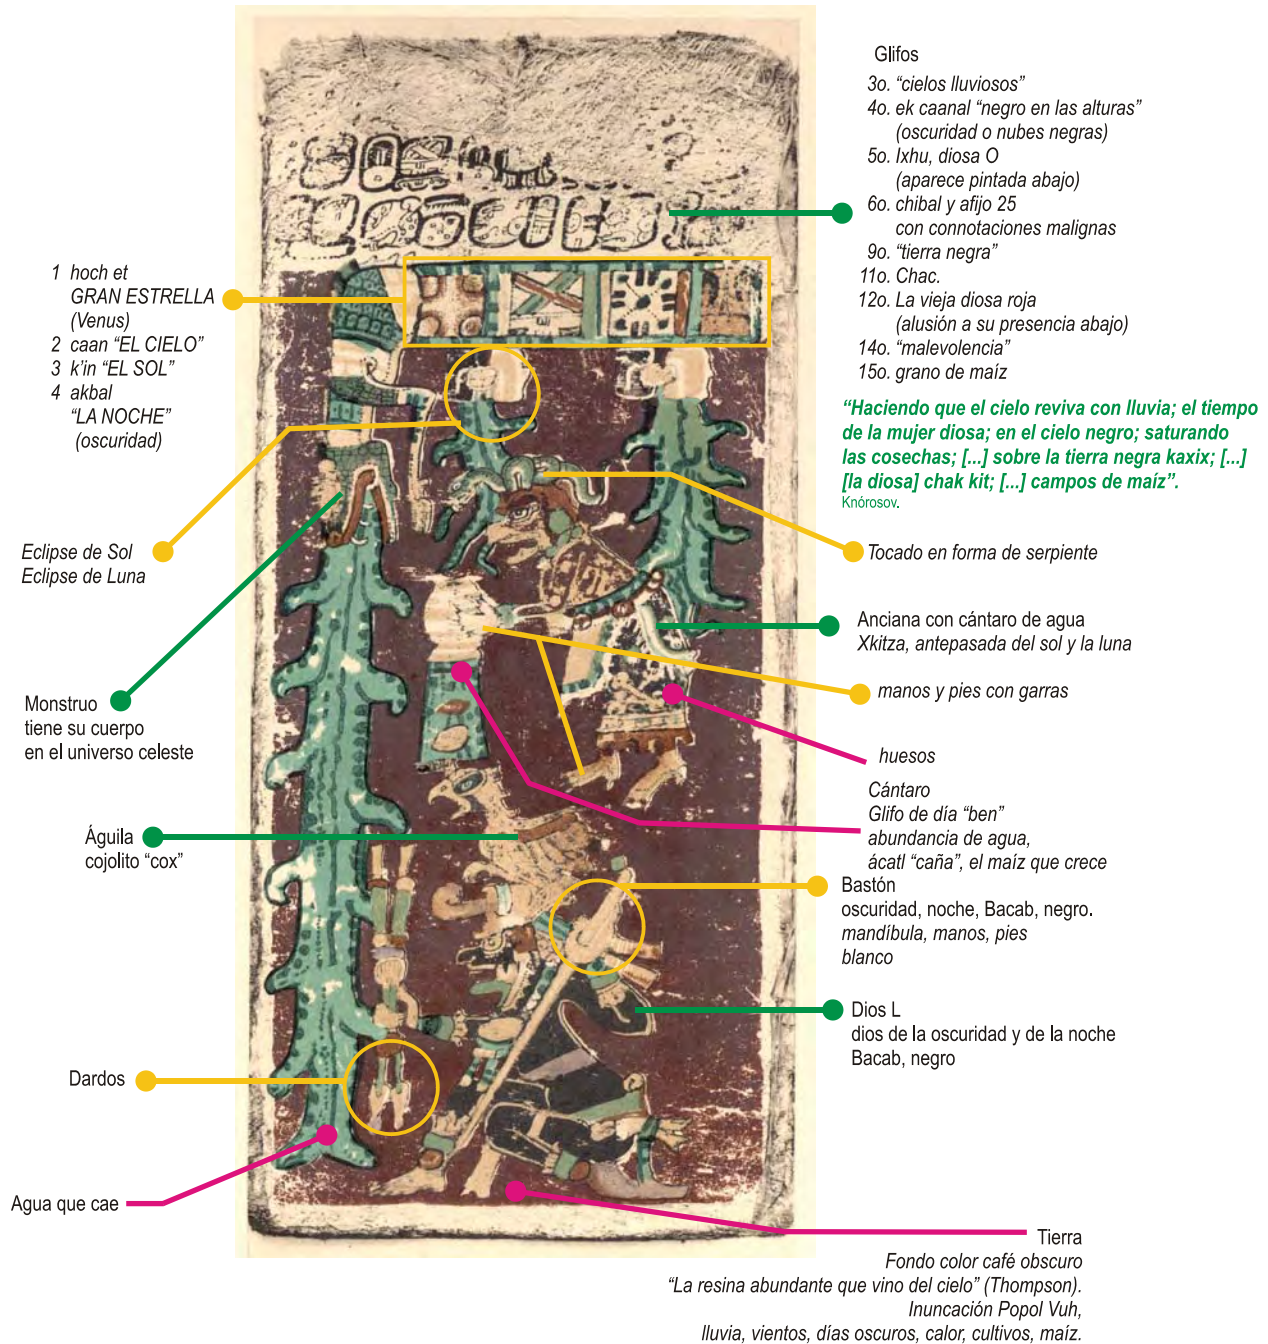 Glifos
3o. “cielos lluviosos”
4o. ek caanal “negro en las alturas”
(oscuridad o nubes negras)
5o. Ixhu, diosa O
(aparece pintada abajo)
6o. chibal y afijo 25
con connotaciones malignas
9o. “tierra negra”
11o. Chac.
12o. La vieja diosa roja
(alusión a su presencia abajo)
14o. “malevolencia”
15o. grano de maíz
“Haciendo que el cielo reviva con lluvia; el tiempo
de la mujer diosa; en el cielo negro; saturando
las cosechas; [...] sobre la tierra negra kaxix; [...]
[la diosa] chak kit; [...] campos de maíz”.
Knórosov.
1 hoch et
GRAN ESTRELLA
(Venus)
2 caan “EL CIELO”
3 k’in “EL SOL”
4 akbal
“LA NOCHE”
(oscuridad)
Eclipse de Sol
Eclipse de Luna
Tocado en forma de serpiente
Anciana con cántaro de agua
Xkitza, antepasada del sol y la luna
manos y pies con garras
Monstruo
tiene su cuerpo
en el universo celeste
huesos
Cántaro
Glifo de día “ben”
abundancia de agua,
ácatl “caña”, el maíz que crece
Águila
cojolito “cox”
Bastón
oscuridad, noche, Bacab, negro.
mandíbula, manos, pies
blanco
Dios L
dios de la oscuridad y de la noche
Bacab, negro
Dardos
Agua que cae
Tierra
Fondo color café obscuro
“La resina abundante que vino del cielo” (Thompson).
Inuncación Popol Vuh,
lluvia, vientos, días oscuros, calor, cultivos, maíz.